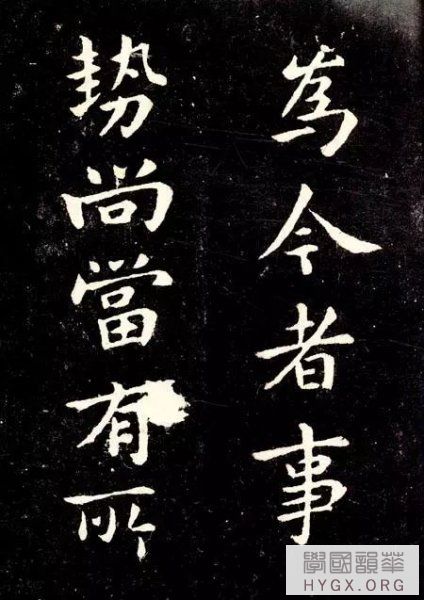 為今者事
勢尚當有所
學國韻華
HYGX.ORG